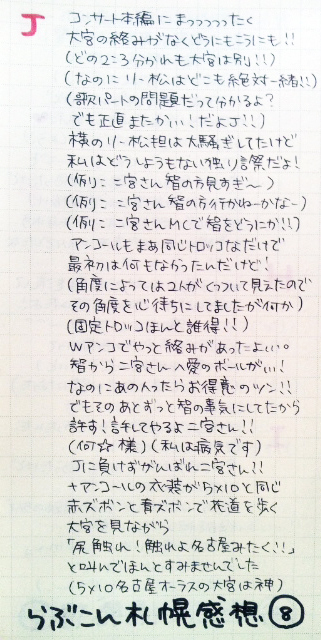 J
コンサート本編にまっつっつったく
大宮の絡みがなくどうにもこうにも!!
(どの2:3分かれも大宮は別!!)
(なのにリー松はどこも絶対一緒!!)
(歌パートの問題だって分かるよ?
でも正直またかい!だよJ!!)
横のリー松担は大騒ぎしてたけど
私はどうしようもない独り言祭だよ!
(例)こ二宮さん智の方見すぎ〜)
(例)こ二宮さん智の方行かねーかなー)
(例)こ二宮さんMCで智をどうにか!!)
アンコールもまあ同じトロッコなだけで
最初は何もなかったんだけど!
(角度によっては2人がくっついて見えたので
その角度を心待ちにしてましたが何か)
(固定トロッコほんと誰得!!)
Wアンコでやっと絡みがあったよぃぃ。
智から二宮さんへ愛のボールがぃぃ!
なのにあの人ったらお得意のツン!!
でもそのあとずっと智の事気にしてたから
許す!許してやるよ二宮さん!!
(何☆様)(私は病気です)
Jに負けずがんばれ二宮さん!!
+アンコールの衣装が5x10と同じ
赤ズボンと青ズボンで花道を歩く
大宮を見ながら
「尻触れ!触れよ名古屋みたく!!」
と叫んでほんとすみませんでした
(5x10名古屋オーラスの大宮は神)
らぶこん札幌感想⑧